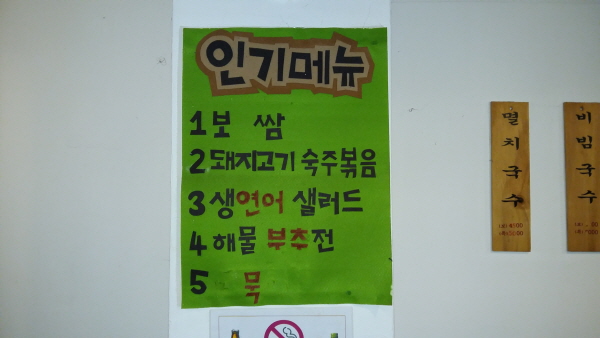 인기메뉴
1 보 쌈
2 돼지고기 숙주볶음
3 생연어 샐러드
4 해물 부추전
5 묵
멸치국수
비빔국수